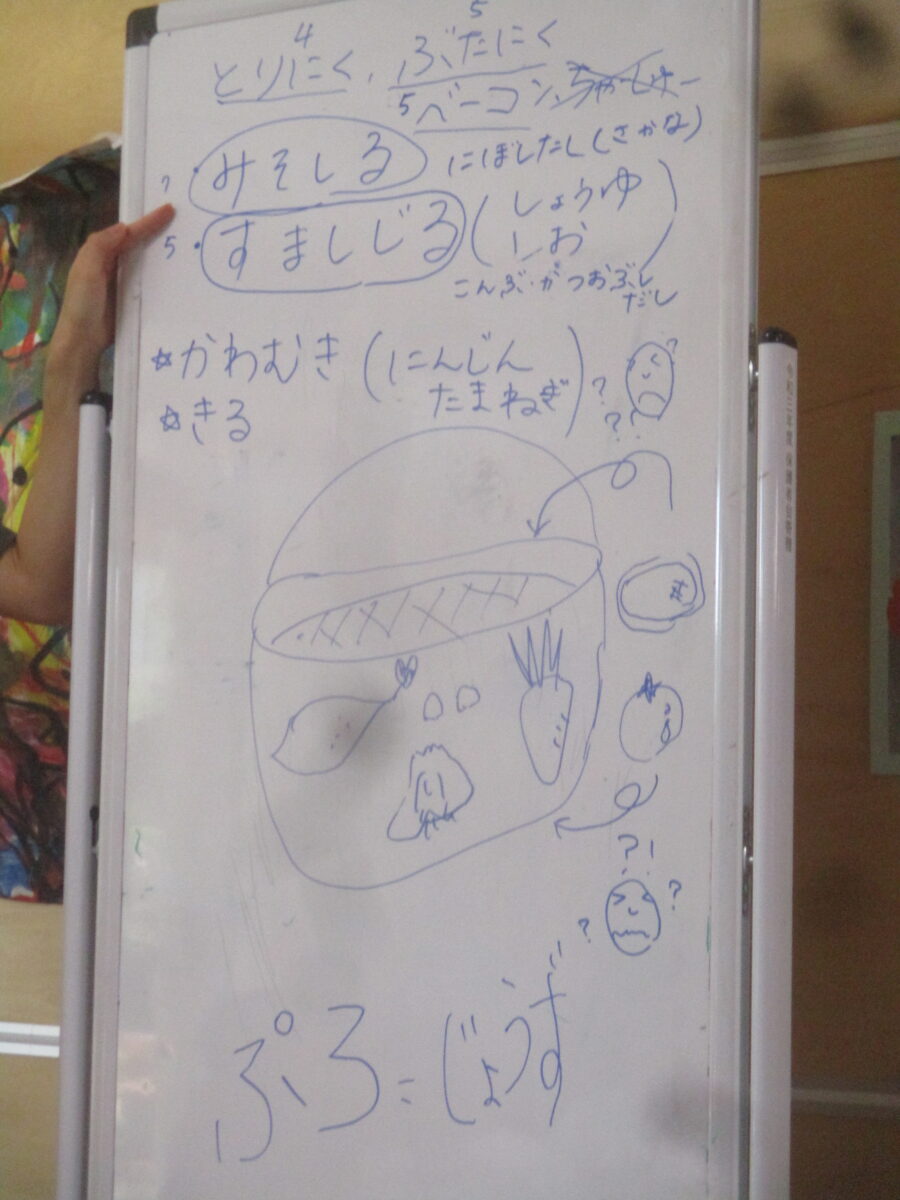 4 5
とりにく、ぶたにく
5 ベーコン、ちゃーしゅー
7 ・みそしる にぼしだし(さかな)
5 ・すましじる (しょうゆ
しお)
こんぶ・かつおぶし
だし
☆かわむき (にんじん
たまねぎ)
☆きる
?
?
??
?!
?
?
ぷろ=じょうず